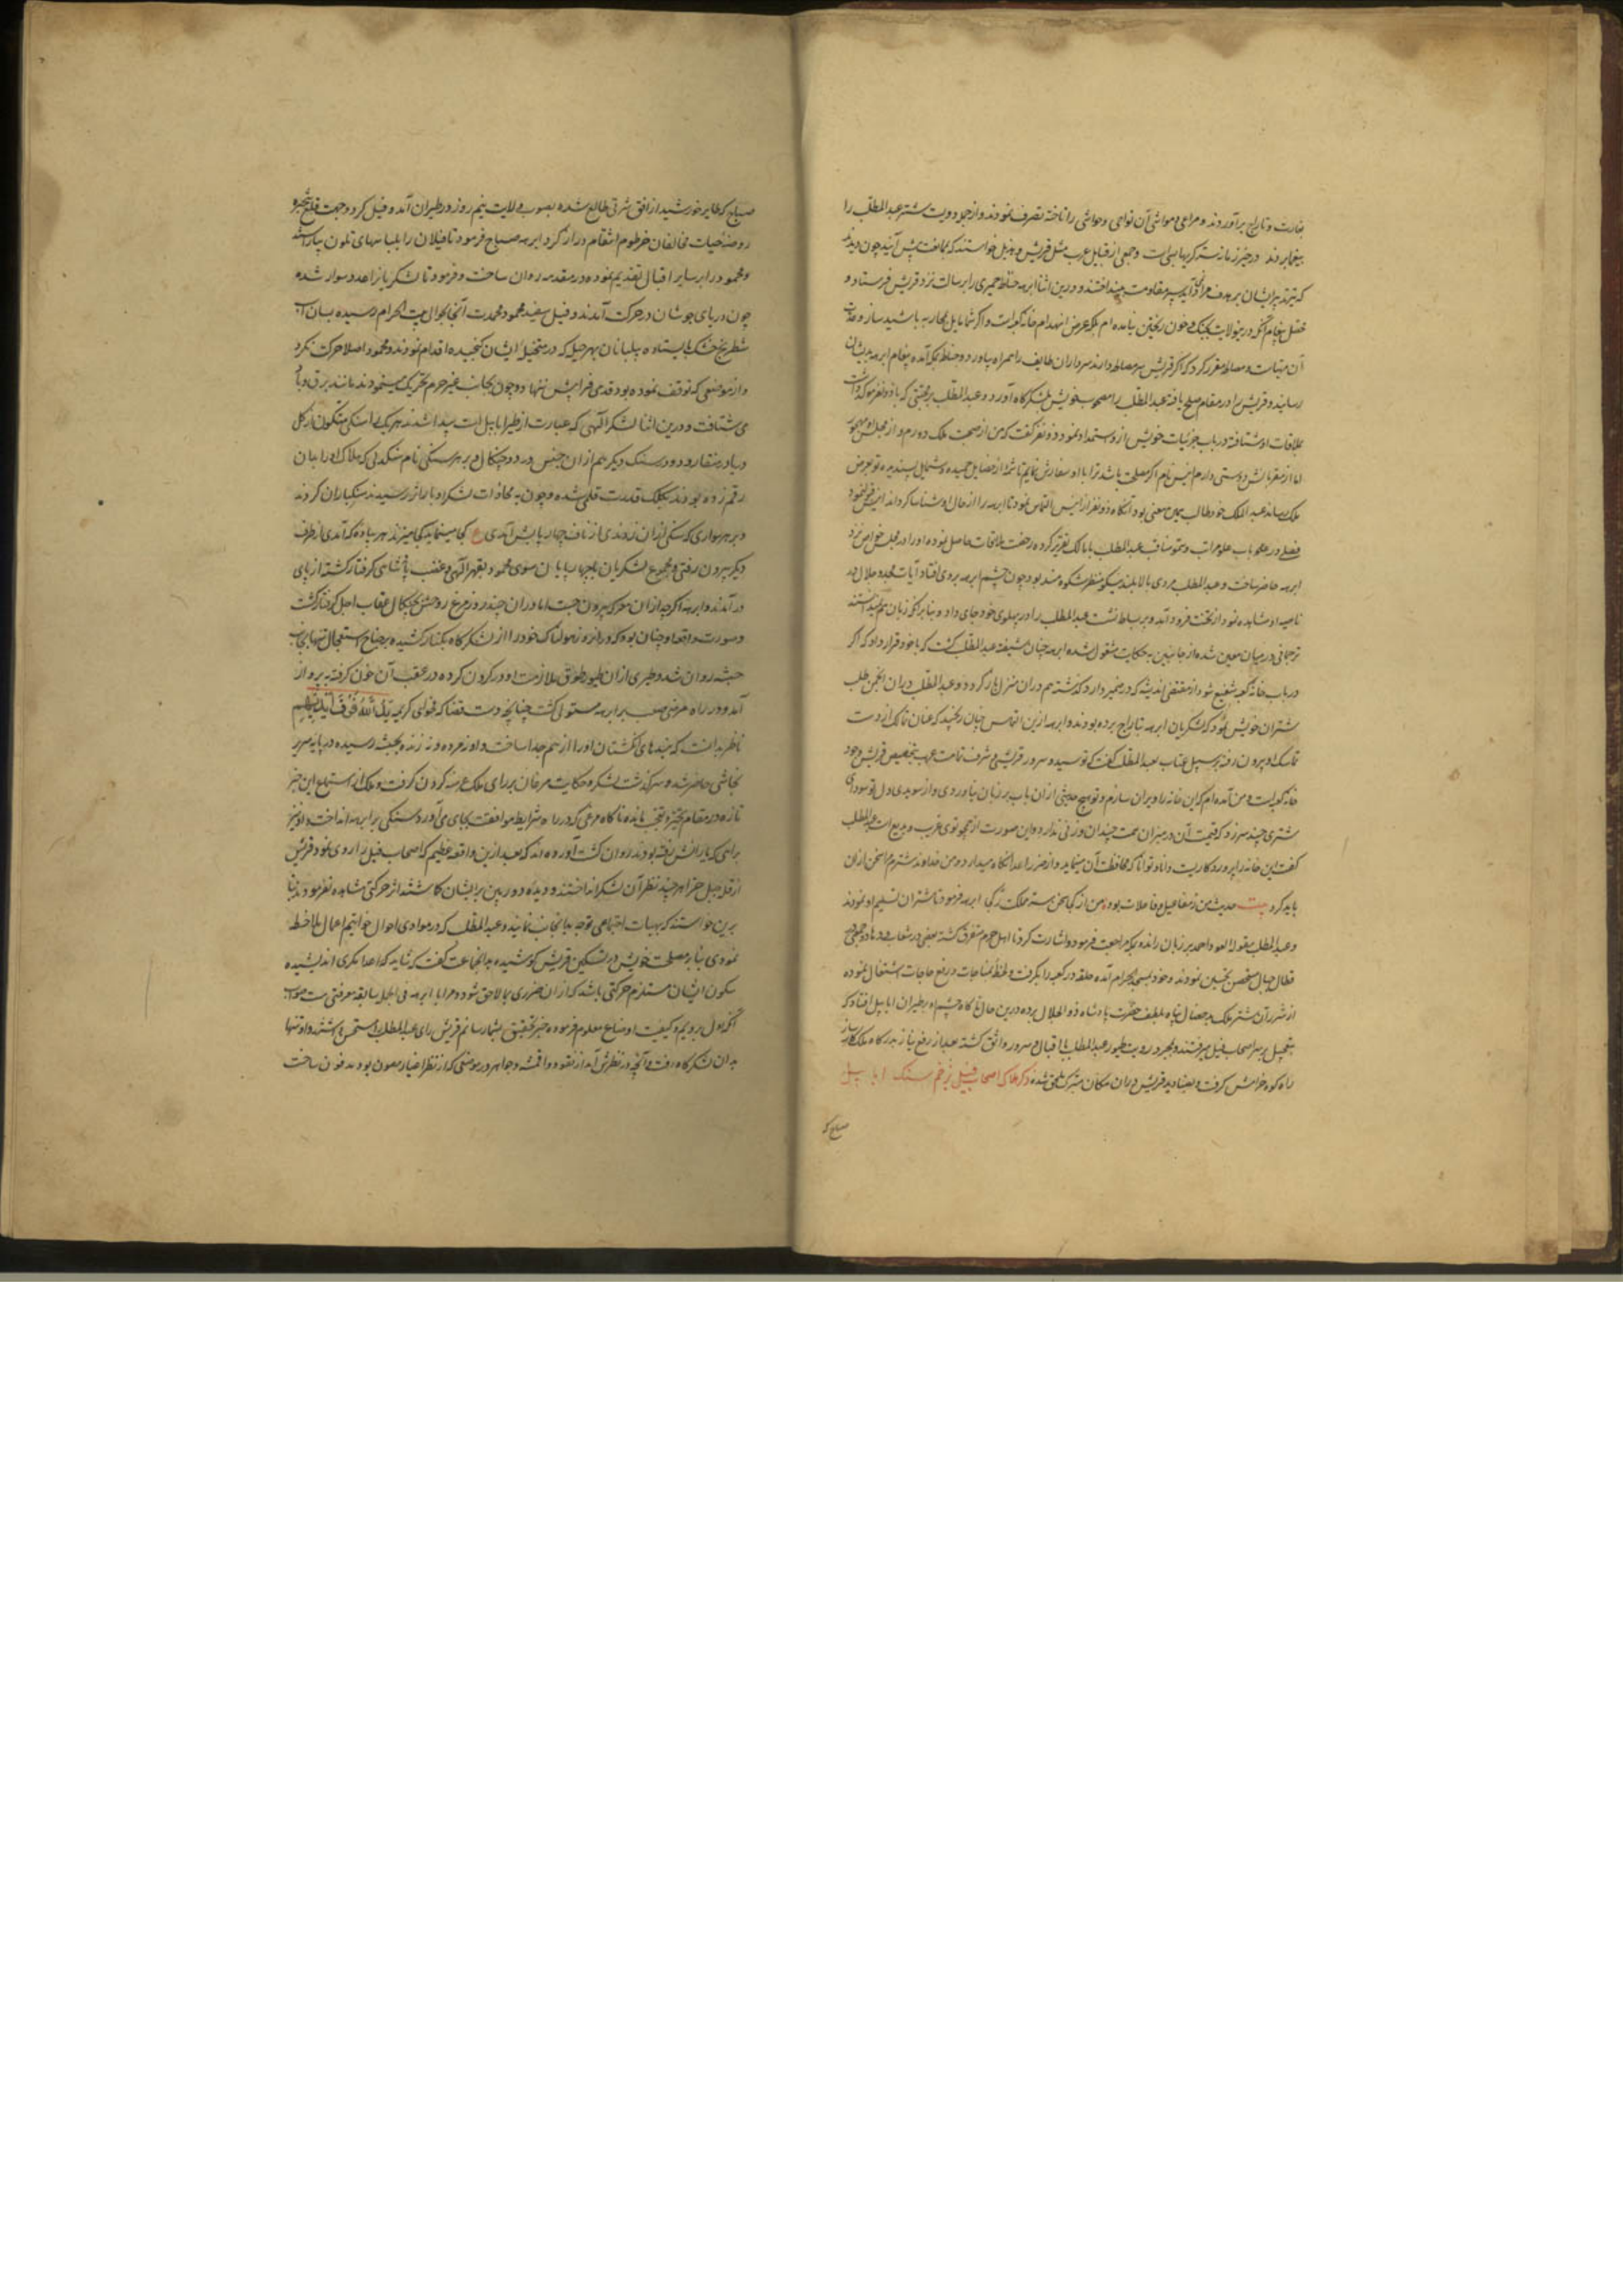 بغارت و تاراج برآوردند و مراعی و مواشی آن نواحی و حواشی را تاخته تصرف نمودند و از جمله دویست شتر عبدالمطلب را
وجمعی از قبایل عرب مثل قریش و هذیل خواستند که بممانعت پیش آیند چون دیدند
که تیر تدبیر ایشان بر هدف مراد نمی آید مقاومت و درین اثنا ابرهه حناطه حمیری را برسالت نزد قریش فرستاد و
پیغام آنکه درین ولایت بجنک و خون ریختن نیامده ام بلکه غرض انهدام خانه کعبه است و اکر شما مایل بمحاربه باشید
مقرر کرد که اکر قریش سر مصالحه دارند سرداران طایف را همراه بیاورد و حناطه بمکه آمده پیغام ابرهه بدیشان
رسانید و قریش را در مقام صلح یافته عبدالمطلب را مصحوب خویش بلشکرکاه آورد و عبدالمطلب که با ذونفر داشت
بملاقات او شتافته در باب جزئیات خویش از و استمداد نمود و ذونفر کفت که من از صحبت ملک دورم و از مجلس او مهجور
اما از مقربانش دوستی دارم انیس نام اکر مصلحت باشد ترا باو سفارش نمایم تا شمه از فضایل حمیده و شمایل پسندیده تو بعرض
ملک رساند عبدالملک خود طالب همین معنی بود آنکاه ذونفر از انیس التماس نمود تا ابرهه را از حال او شناسا کرداند انیس
فصلی در علو مراتب و سمو مناقب عبدالمطلب با مالک تقریر کرده رخصت ملاقات حاصل نموده او را در مجلس خواص نزد
ابرهه حاضر ساخت و عبدالمطلب مردی بالا بلند نیکو منظر شکوه مند بود چون چشم ابرهه بروی افتاد آیات مجد و جلال در
ناصیه او مشاهده نمود از تخت فرود آمد و بر بساط نشست عبدالمطلب را در پهلوی خود جای داد و بنا بر آنکه زبان هم نمیدانستند
ترجمانی در میان معین شده از جانبین بحکایت مشغول شده ابرهه چنان شیفته عبدالمطلب کشت که با خود قرار داد که اکر
در باب خانه کعبه شفیع شود از مقتضی اندیشه که در ضمیر دارد کذشته هم دران منزل باز کردد و عبدالمطلب دران انجمن طلب
شتران خویش نمود که لشکریان ابرهه بتاراج برده بودند و ابرهه ازین التماس چنان رنجید که عنان تمالک از دست
تماسک او بیرون رفته بر سبیل عتاب بعبدالمطلب کفت که تو سید و سرور قریشی و شرف تمامت عرب بتخصیص قریش وجود
خانه کعبه است و من آمده ام که این خانه را ویران سازم و تو هیچ حدیثی ازان باب بر زبان نیاوردی و از سویدای دل تو سودای
شتری چند سر زد که قیمت آن در میزان همت چندان وزنی ندارد و این صورت از همچو توی غریب و بدیع است عبدالمطلب
کفت این خانه را پروردکاریست دانا و توانا که محافظت آن مینماید و از ضرر اعدا نکاه میدارد و من خداوند شترم سخن ازان
باید کرد بیت حدیث من ز مفاعیل و فاعلات بود من از کجا سخن سر مملکت ز کجا ابرهه فرمود تا شتران تسلیم او نمودند
وعبدالمطلب مقوله العود احمد بر زبان رانده بمکه مراجعت فرمود و اشارت کرد تا اهل حرم متفرق کشته بعضی در شعاب و وهاد و جمعی در
قلال جبال متحصن بحصین نمودند و خود بمسجد الحرام آمده حلقه در کعبه را بکرفت و لحظه بمناجات و رفع حاجات اشتغال نموده
از شر آن شتر ملک بد فعال پناه بلطف حضرت پادشاه ذو الجلال برده درین حال ناکاه چشم او بطیران ابابیل افتاد که
بتعجیل بر سر اصحاب فیل میرفتند و بمجرد رویت طیور عبدالمطلب باقبال و سرور واثق کشته بعد از رفع نیاز بدرکاه ملک کارساز
راه کوه حرا پیش کرفت و بصنادید قریش دران مکان متبرک ملحق شده ذکر هلاک اصحاب فیل بزخم سنک ابابیل
صباح که
صباح که طایر خورشید از افق شرقی طالع شده بصوب ولایت نیم روز در طیران آمد و فیل کردون جهت قلع شجره
روضه حیات مخالفان خرطوم انتقام دراز کرد ابرهه صباح فرمود تا فیلان را بلباسهای تلون بیاراستند
و محمود را بر سایر افیال تقدیم نموده در مقدمه روان ساخت و فرمود تا لشکریان از حد و سوار شده
چون دریای جوشان در حرکت آمدند و فیل سفید محمود محمدت آنجا بحوالی بیت الحرام رسیده بسان اسب
شطرنج خشک بایستاده پیلبانان بهر حیل که در متخیل ایشان کنجید اقدام نمودند و محمود اصلا حرکت نکرد
و از موضعی که توقف نموده بود قدمی فرا پیش ننهاد و چون بجانب غیر حرم تحریک مینمودند مانند برق و باد
می شتافت و درین اثنا لشکر الهی که عبارت از طیر ابابیل است پیدا شدند هر یک را سنکی متکون از کل
در منقار و دو سنک دیکر هم ازان جنس در دو چنکال و بر هر سنکی نام سنکدلی که هلاک او را بدان
رقم زده بودند بکلک قدرت قلمی شده و چون به محاذات لشکر اوباراز رسیدند سنکباران کردند
و بر هر سواری که سنکی ازان زدندی از ناف چهارپایش آمدی ع کجا مینماید کجا میزند هر پیاده که آمدی از طرف
دیکر بیرون رفتی و مجموع لشکریان با چهارپایان سوی محمود بقهر الهی و غضب پادشاهی کرفتار کشته از پای
درآمدند و ابرهه اکرچه ازان معرکه بیرون جست اما دران چند روز مرغ روحش بچنکال عقاب اجل کرفتار کشت
و صورت واقعه او چنان بود که در ان روز هولناک خود را از لشکرکاه بکنار کشیده بر جناح استعجال تنها بجانب
حبشه روان شد و طیری ازان طیور طوق ملازمت او در کردن کرده در عقب آن خون کرفته بپرواز
آمد و در راه مرضی صعب بر ابرهه مستولی کشت چنانچه دست قضا که فحوای کریمه یَدُ اللهِ فَوْقَ أَیْدِیهِم
ناظر بدانست که بندهای انکشتان او را از هم جدا ساخت و او نه مرده و نه زنده بحبشه رسیده در پایه سریر
نجاشی حاضر شد و سرکذشت لشکر و حکایت مرغان بر رای ملک عرضه کردن کرفت و ملک از استماع این خبر
تازه در مقام تحیر و تعجب مانده ناکاه مرغی که در راه شرایط موافقت بجای می آورد سنکی بر ابرهه انداخت و او نیز
براهی که یارانش رفته بودند روان کشت آورده اند که بعد ازین واقعه عظیم که اصحاب فیل را روی نمود قریش
از قله جبل حرا هر چند نظر آن لشکر انداختند و دیده دوربین بر ایشان کاشتند اثر حرکتی مشاهده نفرمودند بنا
برین خواستند که بهیات اجتماعی توجه بدانجانب نمایند و عبدالمطلب که در مبادی احوال خواتیم اعمال ملاحظه
نمودی بنا بر مصلحت خویش در تسکین قریش کوشیده بدانجماعت کفت که شاید که اعدا مکری اندیشیده
سکون ایشان مستلزم حرکتی باشد که ازان ضرری بما لاحق شود و مرا با ابرهه فی الجمله سابقه معرفتی هست صواب
آنکه اول بروم و کیفیت اوضاع معلوم فرموده خبر تحقیق بشما رسانم قریش رای عبدالمطلب را مستحسن داشتند و او تنها
بدان لشکرکاه رفت و آنچه در نظرش آمد از نقود و اقمشه و جواهر در موضعی که از نظر اغیار مصون بود مدفون ساخت